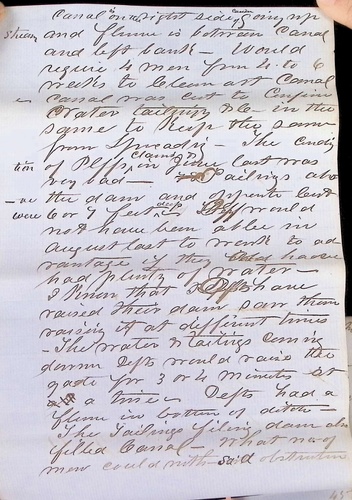 Canal on the right side going up
stream and flume is between Canal
and left bank – Would
require 4 men from 4 to 6
weeks to clean out Canal
– Canal was cut to confine
Water tailings &c – in the
same to keep the same
from spreading – The condi
tion of Plffs claims in June last was
very bad – tailings abo
–ve the dam and opposite last
were 6 or 7 feet deep Plff would
not have been able in
August last to work to ad
vantage if they had have
had plenty of water –
I know that Defts have
raised their dam saw them
raising it at different times
– The water & tailings coming
down Defts would raise the
gate for 3 or 4 minutes at
a time – Defts had a
flume in bottom of ditch –
The Tailings filling dam also
filled Canal – What no of
men could with said obstruction